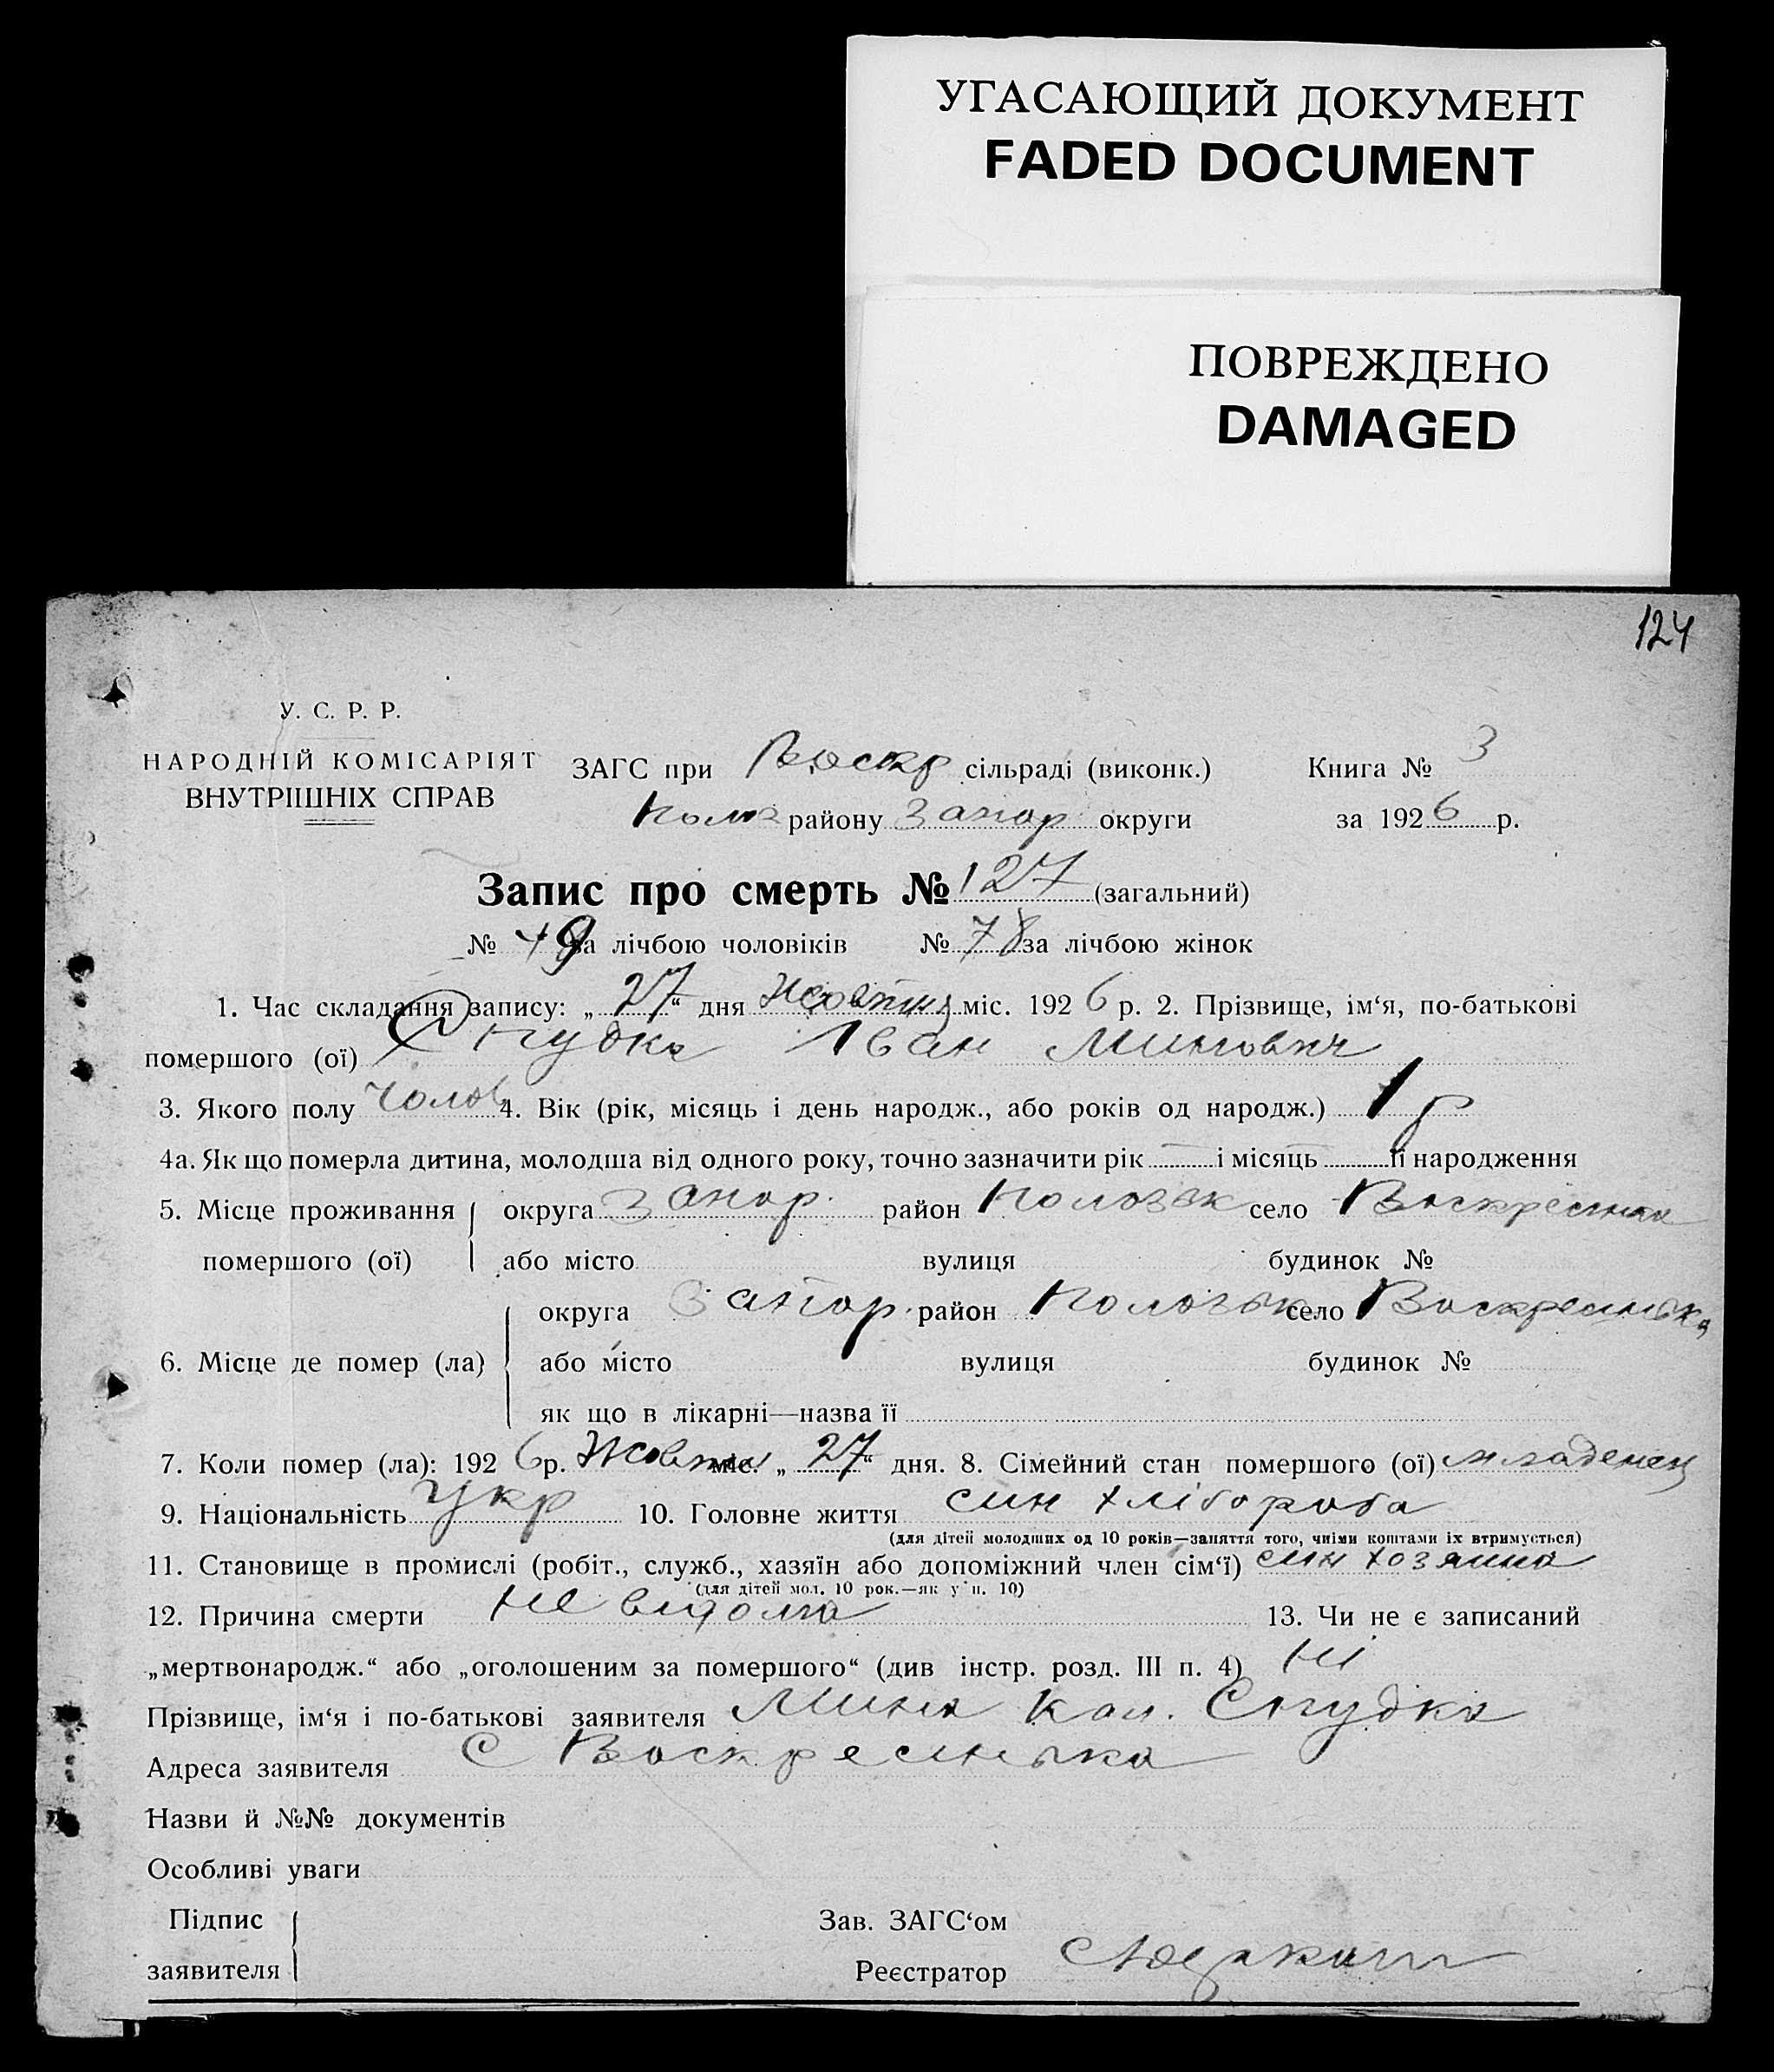 УГАСАЮЩИЙ ДОКУМЕНТ
FADED DOCUMENT
ПОВРЕЖДЕНО
DAMAGED
124
У. С. Р. Р.
НАРОДНІЙ КОМІСАРІЯТ
ВНУТРІШНІХ СПРАВ
ЗАГС при Воскр сільраді (виконк.) Книга № 3
району Запор округи за 1926 р.
Запис про смерть № 127 (загальний)
№ 49 за лічбою чоловіків № 78 за лічбою жінок
1. Час складання запису: „27“ дня Жовтня міс. 1926 р. 2. Прізвище, ім‘я, по-батькові
помершого (ої) Снудка Іван Минович
3. Якого полу Чолов 4. Вік (рік, місяць і день народж., або років од народж.) 1 р
4а. Як що померла дитина, молодша від одного року, точно зазначити рік і місяць її народження
5. Місце проживання округа Запор. район село Воскресінка
помершого (ої) або місто вулиця будинок №
округа Запор. район село Воскресинька
6. Місце де помер (ла) або місто вулиця будинок №
як що в лікарні—назва її
7. Коли помер (ла): 1926 р. Жовтня міс. „27“ дня. 8. Сімейний стан помершого (ої) младенец
9. Національність Укр 10. Головне життя син хлібороба
(для дітей молодших од 10 років—заняття того, чиїми коштами їх втримується)
11. Становище в промислі (робіт., служб., хазяїн або допоміжний член сім‘ї) син хозяина
(для дітей мол. 10 рок.—як у п. 10)
12. Причина смерти не відома 13. Чи не є записаний
„мертвонародж.“ або „оголошеним за помершого“ (див інстр. розд. III п. 4) ні
Прізвище, ім‘я і по-батькові заявителя Мина Снудка
Адреса заявителя С Воскресинька
Назви й №№ документів
Особливі уваги
Підпис Зав. ЗАГС‘ом
заявителя Реєстратор